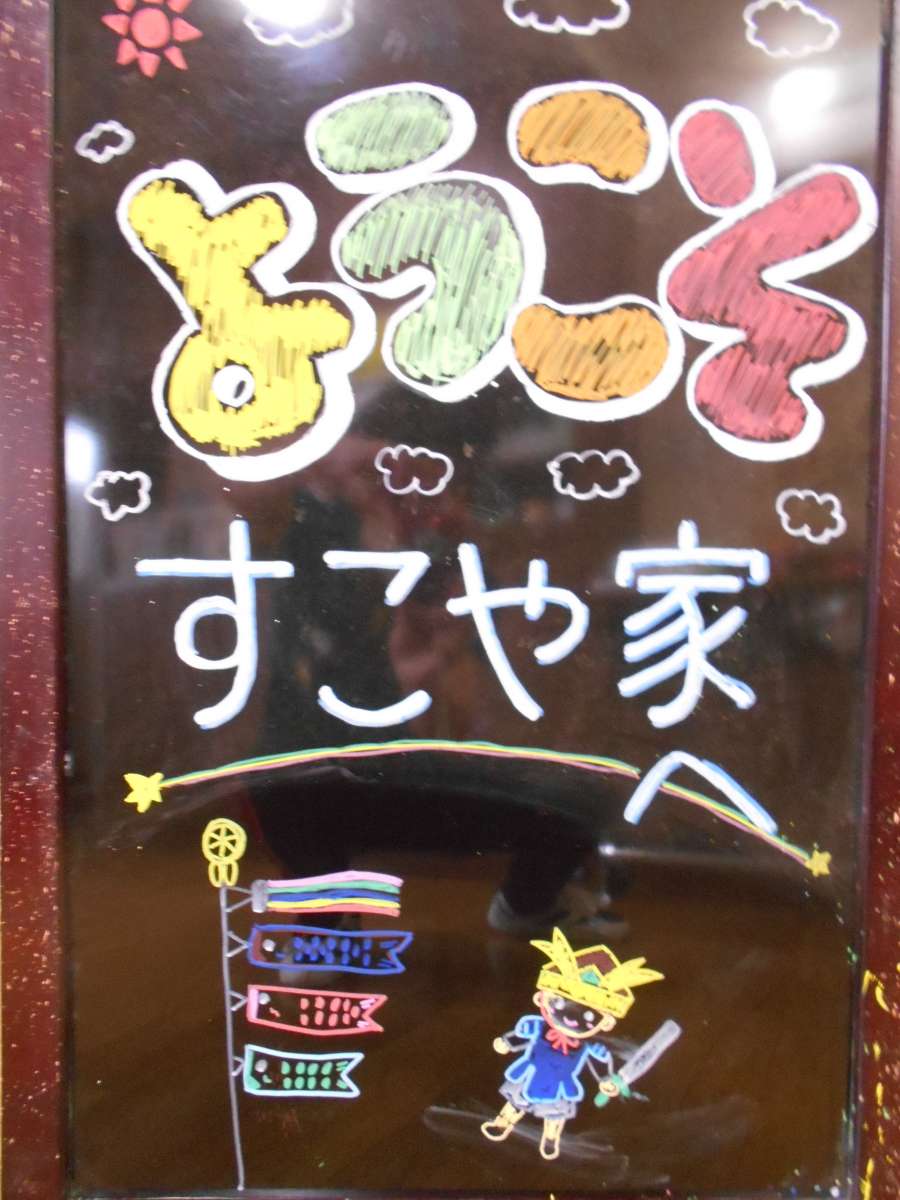 ようこそ
すこや家
へ